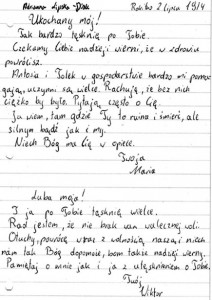 Adrianna Lipska-Ptak Rakitno 2 lipca 1914
Ukochany mój!
Tak bardzo tęsknię po Tobie.
Czekamy Ciebie nadzieji wierni, że w zdrowiu
powrócisz.
Antosia i Tolek w gospodarstwie bardzo mi poma
gają, uczynni są wielce. Rachują, że bez nich
ciężko by było. Pytają często o Cię.
Ja wiem, tam gdzie Ty to ruina i śmierć, ale
silnym bądź jak i my.
Niech Bóg ma Cię w opiece.
Twoja
Maria
Luba moja!
I ja po Tobie tęsknię wielce.
Rad jestem, że nie brak wam walecznej woli
Otuchy, powrócę wraz z wolnością naszą i niech
nam tak Bóg dopomoże, bom także nadzieji wierny.
Pamiętaj o mnie jak i ja z utęsknieniem o Tobie.
Twój
Wiktor